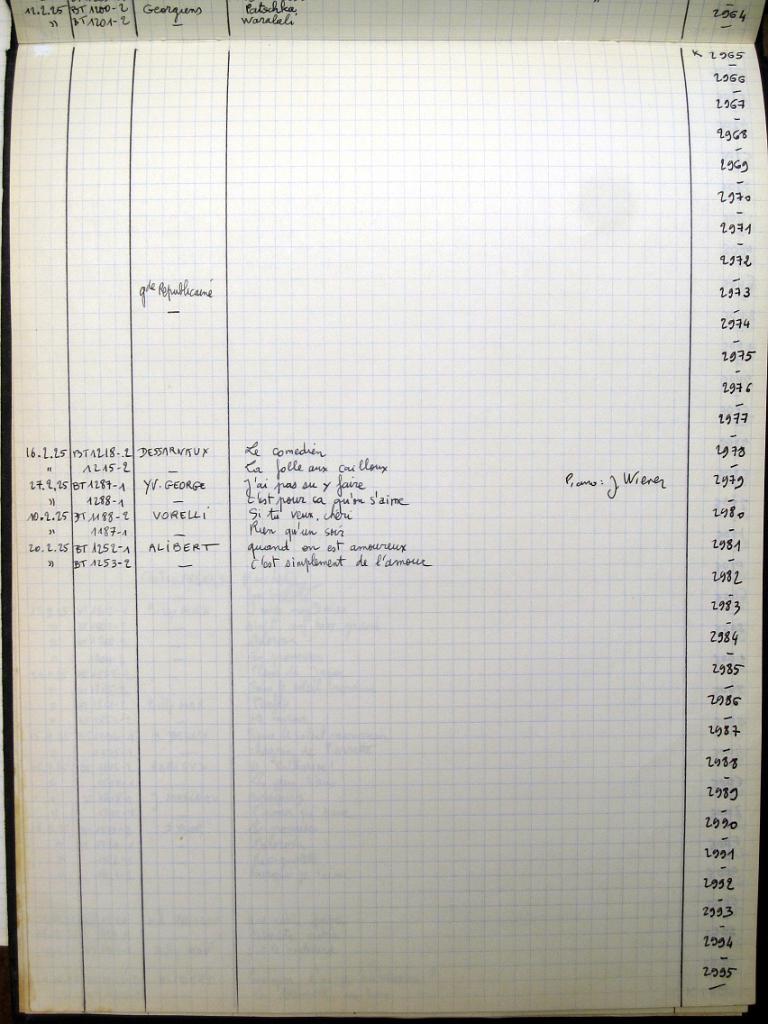 12.2.25 BT 1200-2 Georgiens Patschka, 2964
" BT 1201-2 — Waralali
K 2965
—
2966
—
2967
—
2968
—
2969
—
2970
—
2971
—
2972
—
gde Républicaine 2973
— —
2974
—
2975
—
2976
—
2977
—
16.2.25 BT 1218-2 DESSARNAUX Le comedien 2978
" 1215-2 — La folle aux cailloux —
27.2.25 BT 1287-1 YV. GEORGE J'ai pas su y faire Piano: J Wiener 2979
" 1288-1 — C'est pour ça qu'on s'aime —
10.2.25 BT 1188-2 VORELLI Si tu veux, chéri 2980
" 1187-1 — Rien qu'un soir —
20.2.25 BT 1252-1 ALIBERT quand on est amoureux 2981
" BT 1253-2 — C'est simplement de l'amour —
2982
—
2983
—
2984
—
2985
—
2986
—
2987
—
2988
—
2989
—
2990
—
2991
—
2992
—
2993
—
2994
—
2995
—